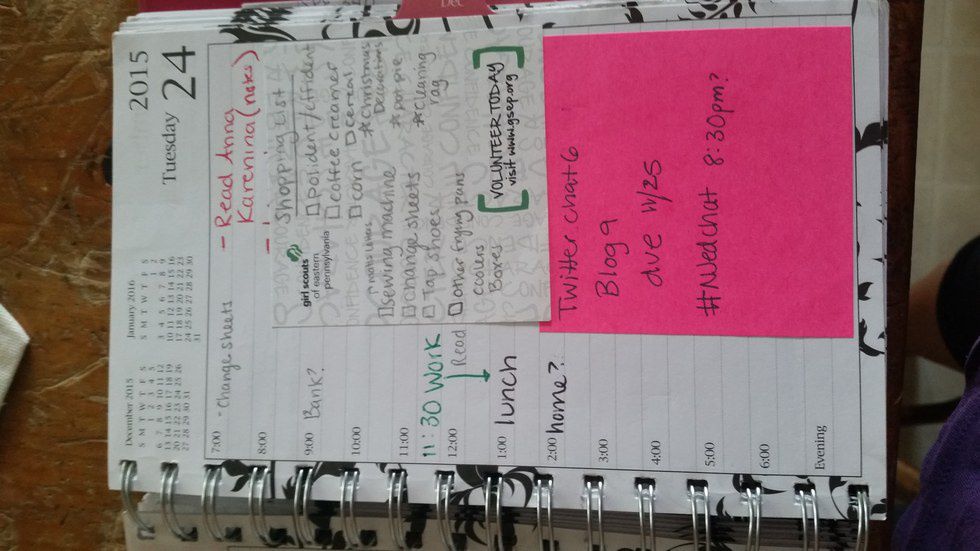 Dec
2015
Tuesday 24
December 2015
S M T W T F S
1 2 3 4 5
6 7 8 9 10 11 12
13 14 15 16 17 18 19
20 21 22 23 24 25 26
27 28 29 30 31
January 2016
S M T W T F S
1 2
3 4 5 6 7 8 9
10 11 12 13 14 15 16
17 18 19 20 21 22 23
24 25 26 27 28 29 30
31
7:00 - Change sheets
- Read Anna
Karenina (notes)
8:00
9:00 Bank?
10:00
11:00
11:30 WORK
12:00 Read
1:00 lunch
2:00 home?
3:00
4:00
5:00
6:00
Evening
girl scouts
of eastern
pennsylvania
Shopping List
polident/effident
coffee creamer
corn cereal
*Christmas
Decorations
sewing machine *pot pie
change sheets *cleaning
rag
Tap shoes
other frying pans
coolers
Boxes
VOLUNTEER TODAY
visit www.gsep.org
Twitter chat 6
Blog 9
due 11/25
#NWedchat 8:30pm?